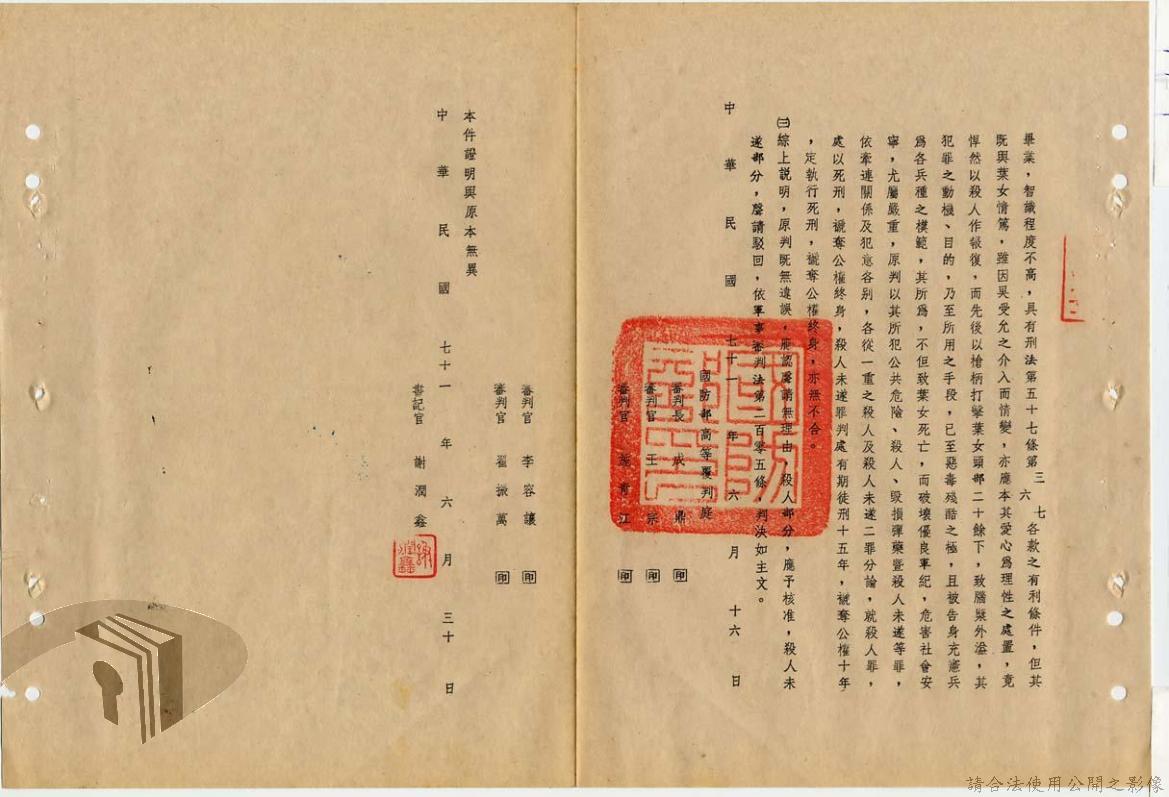 畢業，智識程度不高，具有刑法第五十七條第三六七各款之有利條件，但其
既與葉女情篤，雖因吳受允之介入而情變，亦應本其愛心為理性之處置，竟
悍然以殺人作報復，而先後以槍柄打擊葉女頭部二十餘下，致腦漿外溢，其
犯罪之動機、目的，乃至所用之手段，已至惡毒殘酷之極，且被告身充憲兵
為各兵種之模範，其所為，不但致葉女死亡，而破壞優良軍紀，危害社會安
寧，尤屬嚴重，原判以其所犯公共危險、殺人、毀損彈藥暨殺人未遂等罪，
依牽連關係及犯意各別，各從一重之殺人及殺人未遂二罪分論，就殺人罪，
處以死刑，褫奪公權終身，殺人未遂罪判處有期徒刑十五年，褫奪公權十年
，定執行死刑，褫奪公權終身，亦無不合。
㈢綜上説明，原判既無違誤，應認聲請無理由，殺人部分，應予核准，殺人未
遂部分，聲請駁回，依軍事審判法第二百零五條，判決如主文。
中華民國七十一年六月十六日
國防部高等覆判庭
審判長 成鼎 印
審判官 王宗 印
審判官 青江 印
審判官 李容讓 印
審判官 翟振萬 印
本件證明與原本無異
中華民國七十一年六月三十日
書記官 謝潤鑫
謝潤鑫
請合法使用公開之影像